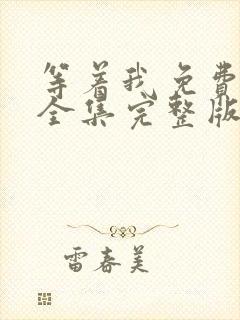 等着我免费
全集完整版
雷春美